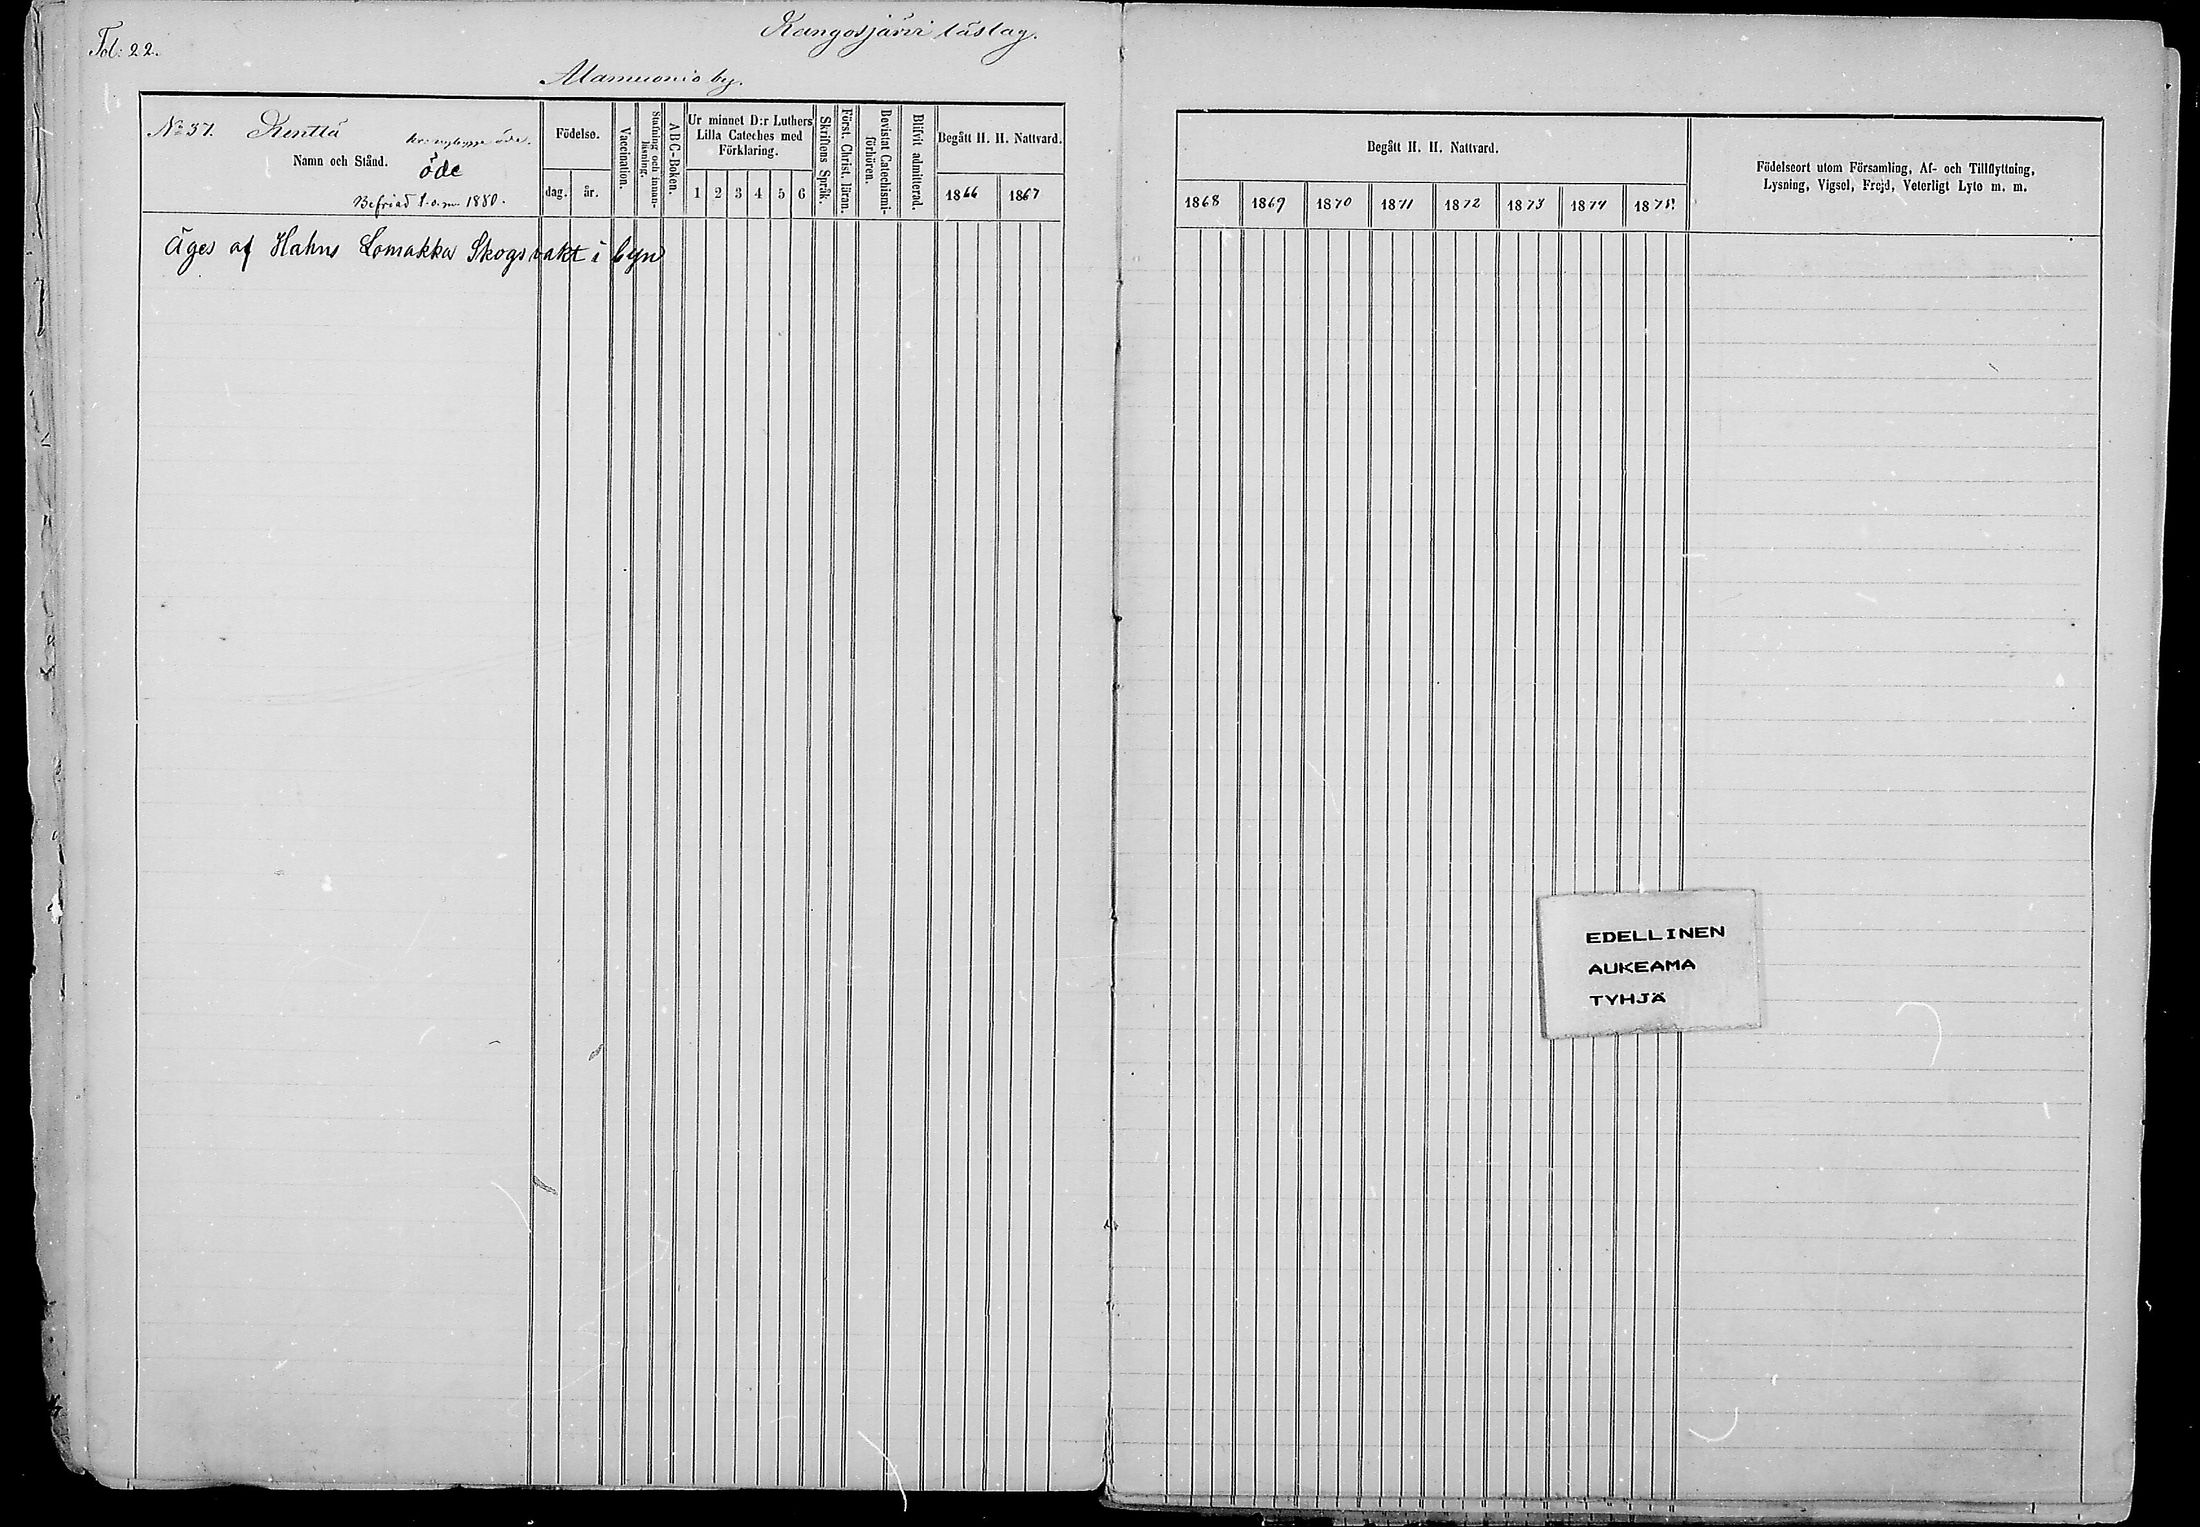 Fol: 22.
Kangosjärvi läslag.
Alamuonio by.
No 37. Kenttä
kr: nybygge öde.
Namn och Stånd.
öde
Befriad t.o.m 1880.
Födelse.
dag. år.
Vaccination.
Stafning och innan-
läsning.
ABC-Boken.
Ur minnet D:r Luthers
Lilla Cateches med
Förklaring.
1 2 3 4 5 6
Skriftens Språk.
Först. Christ. läran.
Bevistat Catechismi-
förhören.
Blifvit admitterad.
Begått H. H. Nattvard.
1866 1867
Äges af Hahns Lomakka Skogsvakt i byn
Begått H. H. Nattvard.
1868 1869 1870 1871 1872 1873 1874 1875
Födelseort utom Församling, Af- och Tillflyttning,
Lysning, Vigsel, Frejd, Veterligt Lyte m. m.
EDELLINEN
AUKEAMA
TYHJÄ